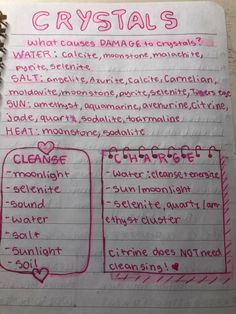 CRYSTALS
What causes DAMAGE to crystals?
WATER: calcite, moonstone, malachite,
pyrite, selenite
SALT: angelite, Azurite, calcite, Carnelian,
moldavite, moonstone, pyrite, selenite, Tigers eye
SUN: amethyst, aquamarine, aventurine, citrine,
Jade, quartz, sodalite, tourmaline
HEAT: moonstone, sodalite
CLEANSE
- moonlight
- selenite
- sound
- water
- salt
- sunlight
- soil
CHARGE
- water: cleanse + energize
- sun/moonlight
- selenite, quartz/am
ethyst cluster
citrine does NOT need
cleansing!